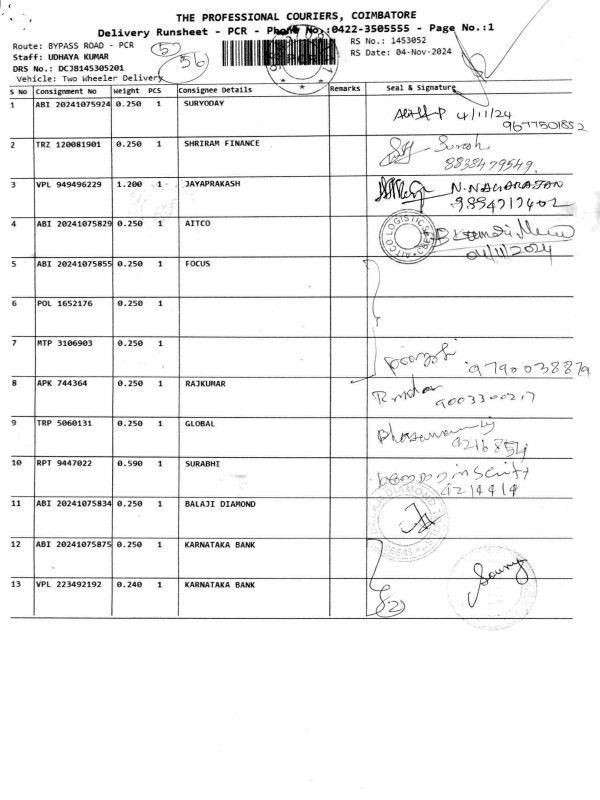 THE PROFESSIONAL COURIERS, COIMBATORE
Delivery Runsheet - PCR - Phone No.:0422-3505555 - Page No.:1
Route: BYPASS ROAD - PCR
RS No.: 1453052
Staff: UDHAYA KUMAR
56
RS Date: 04-Nov-2024
DRS No.: DCJB145305201
Vehicle: Two Wheeler Delivery
S No Consignment No Weight PCS Consignee Details Remarks Seal & Signature
1 ABI 20241075924 0.250 1 SURYODAY
4/11/24
9677501852
2 TRZ 120081901 0.250 1 SHRIRAM FINANCE
Suresh
8838479549
3 VPL 949496229 1.200 1 JAYAPRAKASH
N. NAGARAJAN
4 ABI 20241075829 0.250 1 AITCO
AITCO LOGISTICS
04/11/2024
5 ABI 20241075855 0.250 1 FOCUS
6 POL 1652176 0.250 1
7 MTP 3106903 0.250 1
9790038879
8 APK 744364 0.250 1 RAJKUMAR
9003300217
9 TRP 5060131 0.250 1 GLOBAL
4216854
10 RPT 9447022 0.590 1 SURABHI
4214414
11 ABI 20241075834 0.250 1 BALAJI DIAMOND
DIAMOND
12 ABI 20241075875 0.250 1 KARNATAKA BANK
13 VPL 223492192 0.240 1 KARNATAKA BANK
2